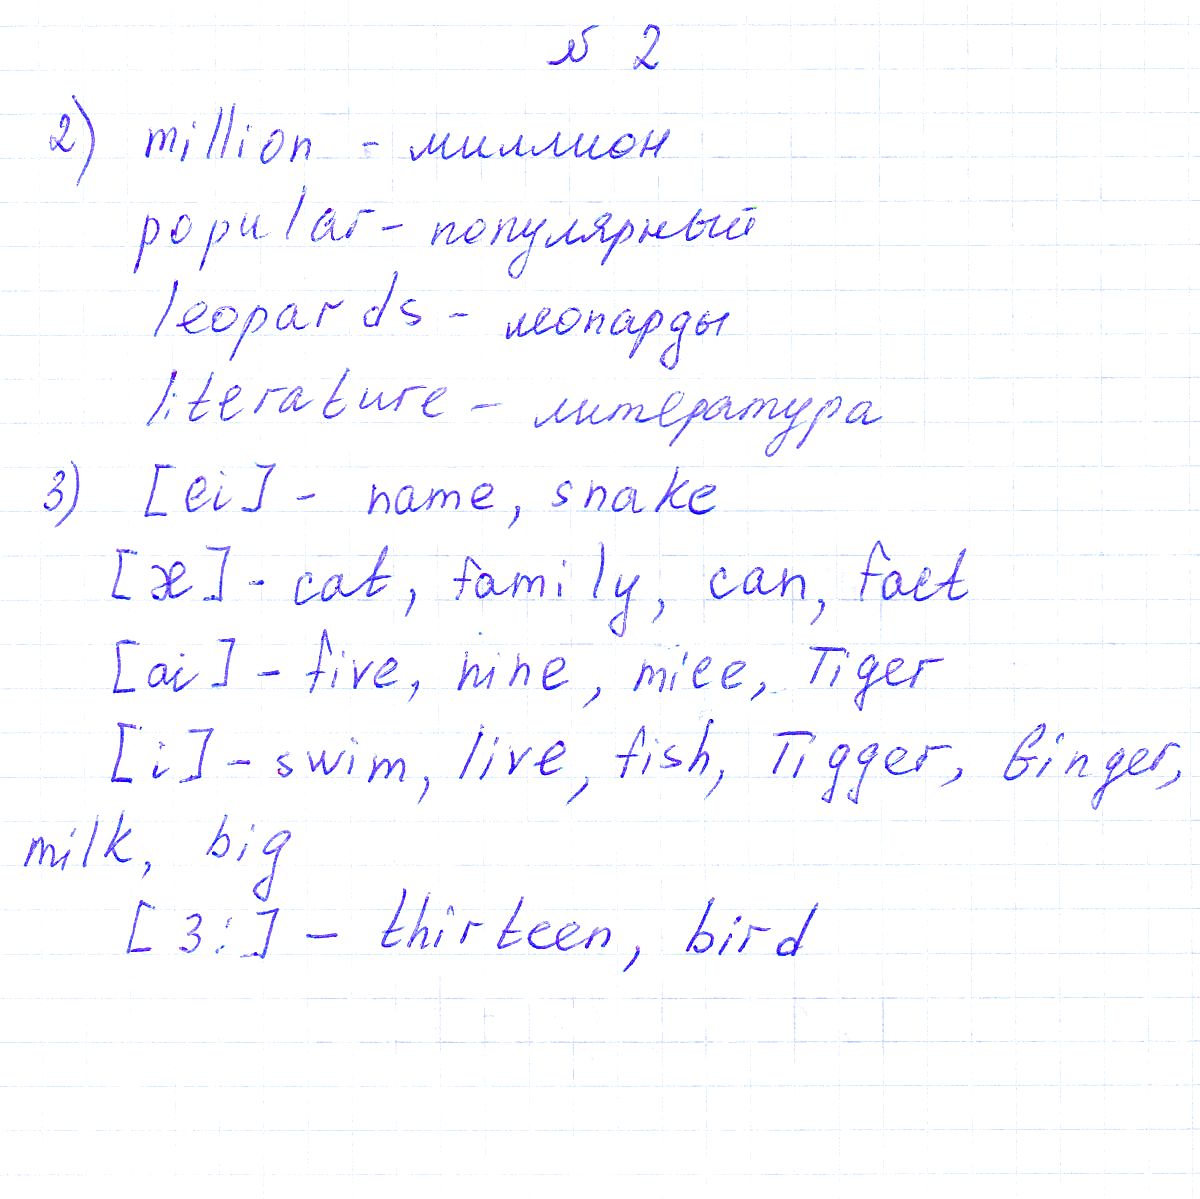 № 2
2) million - миллион
popular - популярный
leopards - леопарды
literature - литература
3) [ei] - name, snake
[æ] - cat, family, can, fact
[ai] - five, nine, mice, Tiger
[i] - swim, live, fish, Tigger, Ginger,
milk, big
[3:] - thirteen, bird